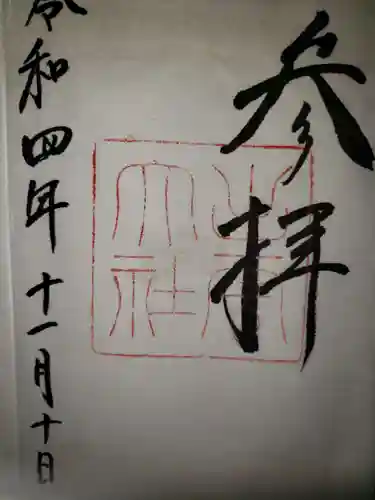 参拝
大社
令和四年十一月十日